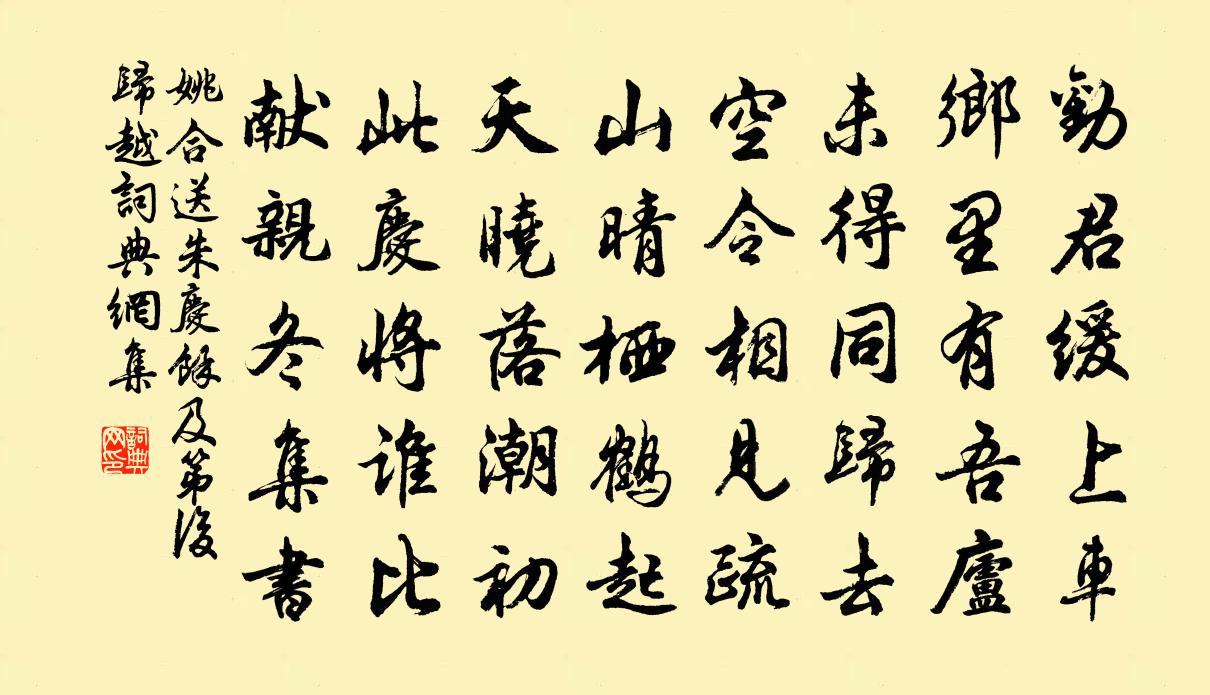 勸君緩上車
鄉里有吾廬
未得同歸去
空令相見疏
山晴栖鶴起
天曉落潮初
此慶將誰比
献親冬集書
姚合送朱慶餘及第後
歸越詞典網集
詞典網印